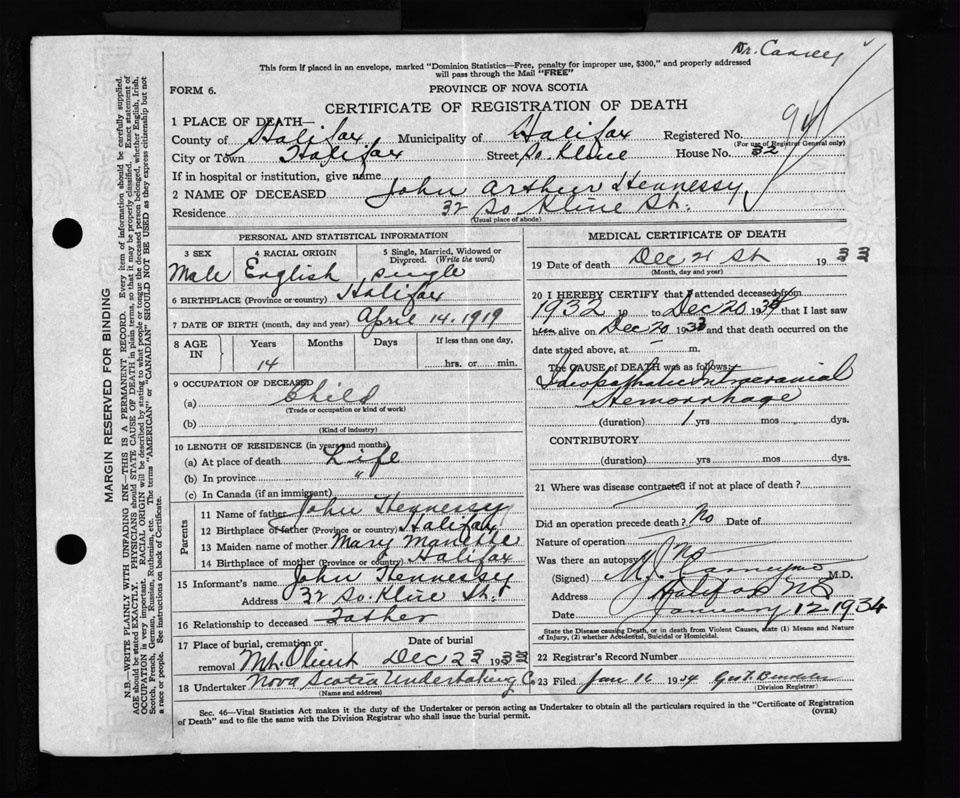 Dr.
This form if placed in an envelope, marked "Dominion Statistics—Free, penalty for improper use, $300," and properly addressed
will pass through the Mail "FREE"
FORM 6.
PROVINCE OF NOVA SCOTIA
CERTIFICATE OF REGISTRATION OF DEATH
1 PLACE OF DEATH—
County of Halifax Municipality of Halifax Registered No.
(For use of Registrar General only)
City or Town Halifax Street So. Kline House No. 32
If in hospital or institution, give name
2 NAME OF DECEASED John Arthur Hennessy
Residence 32 So Kline St.
(Usual place of abode)
PERSONAL AND STATISTICAL INFORMATION
3 SEX 4 RACIAL ORIGIN 5 Single, Married, Widowed or
Divorced. (Write the word)
Male English single
6 BIRTHPLACE (Province or country) Halifax
7 DATE OF BIRTH (month, day and year) April 14. 1919
8 AGE IN Years Months Days If less than one day,
14 hrs. or min.
9 OCCUPATION OF DECEASED
(a) Child
(Trade or occupation or kind of work)
(b)
(Kind of industry)
10 LENGTH OF RESIDENCE (in years and months)
(a) At place of death Life
(b) In province "
(c) In Canada (if an immigrant)
Parents
11 Name of father John Hennessy
12 Birthplace of father (Province or country) Halifax
13 Maiden name of mother Mary
14 Birthplace of mother (Province or country) Halifax
15 Informant's name John Hennessy
Address 32 So. Kline St.
16 Relationship to deceased Father
17 Place of burial, cremation or Date of burial
removal Mt. Olivet Dec 23 1933
18 Undertaker Nova Scotia Undertaking Co
(Name and address)
MEDICAL CERTIFICATE OF DEATH
19 Date of death Dec 21 st 1933
(Month, day and year)
20 I HEREBY CERTIFY that I attended deceased from
1932 19 to Dec 20 193 that I last saw
him alive on Dec 20 1933 and that death occurred on
the date stated above, at — m.
The CAUSE OF DEATH was as follows:
Idiopathatic Intracranial
Hemorrhage
(duration) 1 yrs mos. dys.
CONTRIBUTORY
(duration) yrs mos dys.
21 Where was disease contracted if not at place of death?
Did an operation precede death? No Date of
Nature of operation
Was there an autopsy? No
(Signed) M.D.
Address Halifax NS
Date January 12 1934
State the Disease causing Death, or in death from Violent Causes, state (1) Means and Nature
of Injury, (2) whether Accidental, Suicidal or Homicidal.
22 Registrar's Record Number
23 Filed Jan 16 1934
(Division Registrar)
Sec. 46—Vital Statistics Act makes it the duty of the Undertaker or person acting as Undertaker to obtain all the particulars required in the "Certificate of Registration
of Death" and to file the same with the Division Registrar who shall issue the burial permit.
(OVER)
MARGIN RESERVED FOR BINDING
N.B.—WRITE PLAINLY WITH UNFADING INK—THIS IS A PERMANENT RECORD. Every item of information should be carefully supplied.
AGE should be stated EXACTLY. PHYSICIANS should STATE CAUSE OF DEATH in plain terms, so that it may be properly classified. Exact statement of
OCCUPATION is very important. RACIAL ORIGIN will be described by stating to what people or tongue the deceased person belonged, whether English, Irish,
Scotch, French, German, Russian, Ruthenian, etc. The terms "AMERICAN" or "CANADIAN" SHOULD NOT BE USED as they express citizenship but not
a race or people. See instructions on back of Certificate.